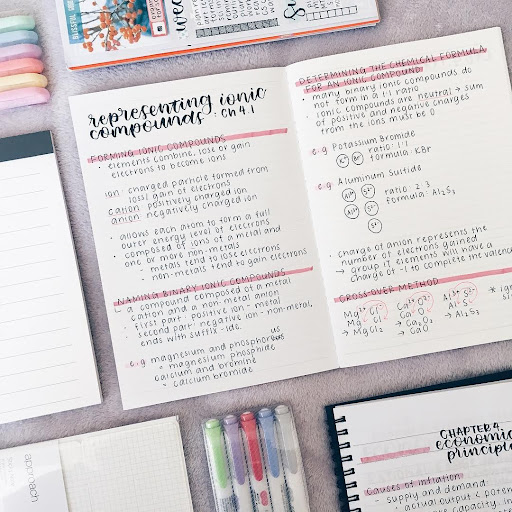 BLISSFUL
representing ionic
compounds : Ch 4.1
FORMING IONIC COMPOUNDS
• elements combine, lose or gain
electrons to become ions
ion: charged particle formed from
loss/gain of electrons
cation: positively charged ion
anion: negatively charged ion
• allows each atom to form a full
outer energy level of electrons
• composed of ions of a metal and
one or more non-metals
• metals tend to lose electrons
• non-metals tend to gain electrons
NAMING BINARY IONIC COMPOUNDS
• a compound composed of a metal
cation and a non-metal anion
• first part: positive ion - metal
second part: negative ion - non-metal,
ends with suffix -ide.
e.g magnesium and phosphorous
• magnesium phosphide
calcium and bromine
• calcium bromide
DETERMINING THE CHEMICAL FORMULA
FOR AN IONIC COMPOUND
• many binary ionic compounds do
not form in a 1:1 ratio
• ionic compounds are neutral → sum
of positive and negative charges
from the ions must be 0
e.g Potassium Bromide
K+ Br- ratio: 1:1
formula: KBr
e.g Aluminum Sulfide
Al3+ S2- ratio: 2:3
Al3+ S2- formula: Al2S3
S2-
• charge of anion represents the
number of electrons gained
→ group 17 elements will have a
charge of -1 to complete the valence
CROSS-OVER METHOD
Mg2+ Cl- Ca2+ O2- Al3+ S2-
→ MgCl2 → Ca2O2 → Al2S3
→ CaO
CHAPTER 4.
economic
principle
Causes of inflation
- supply and demand
- actual output <
capacity, in
approach